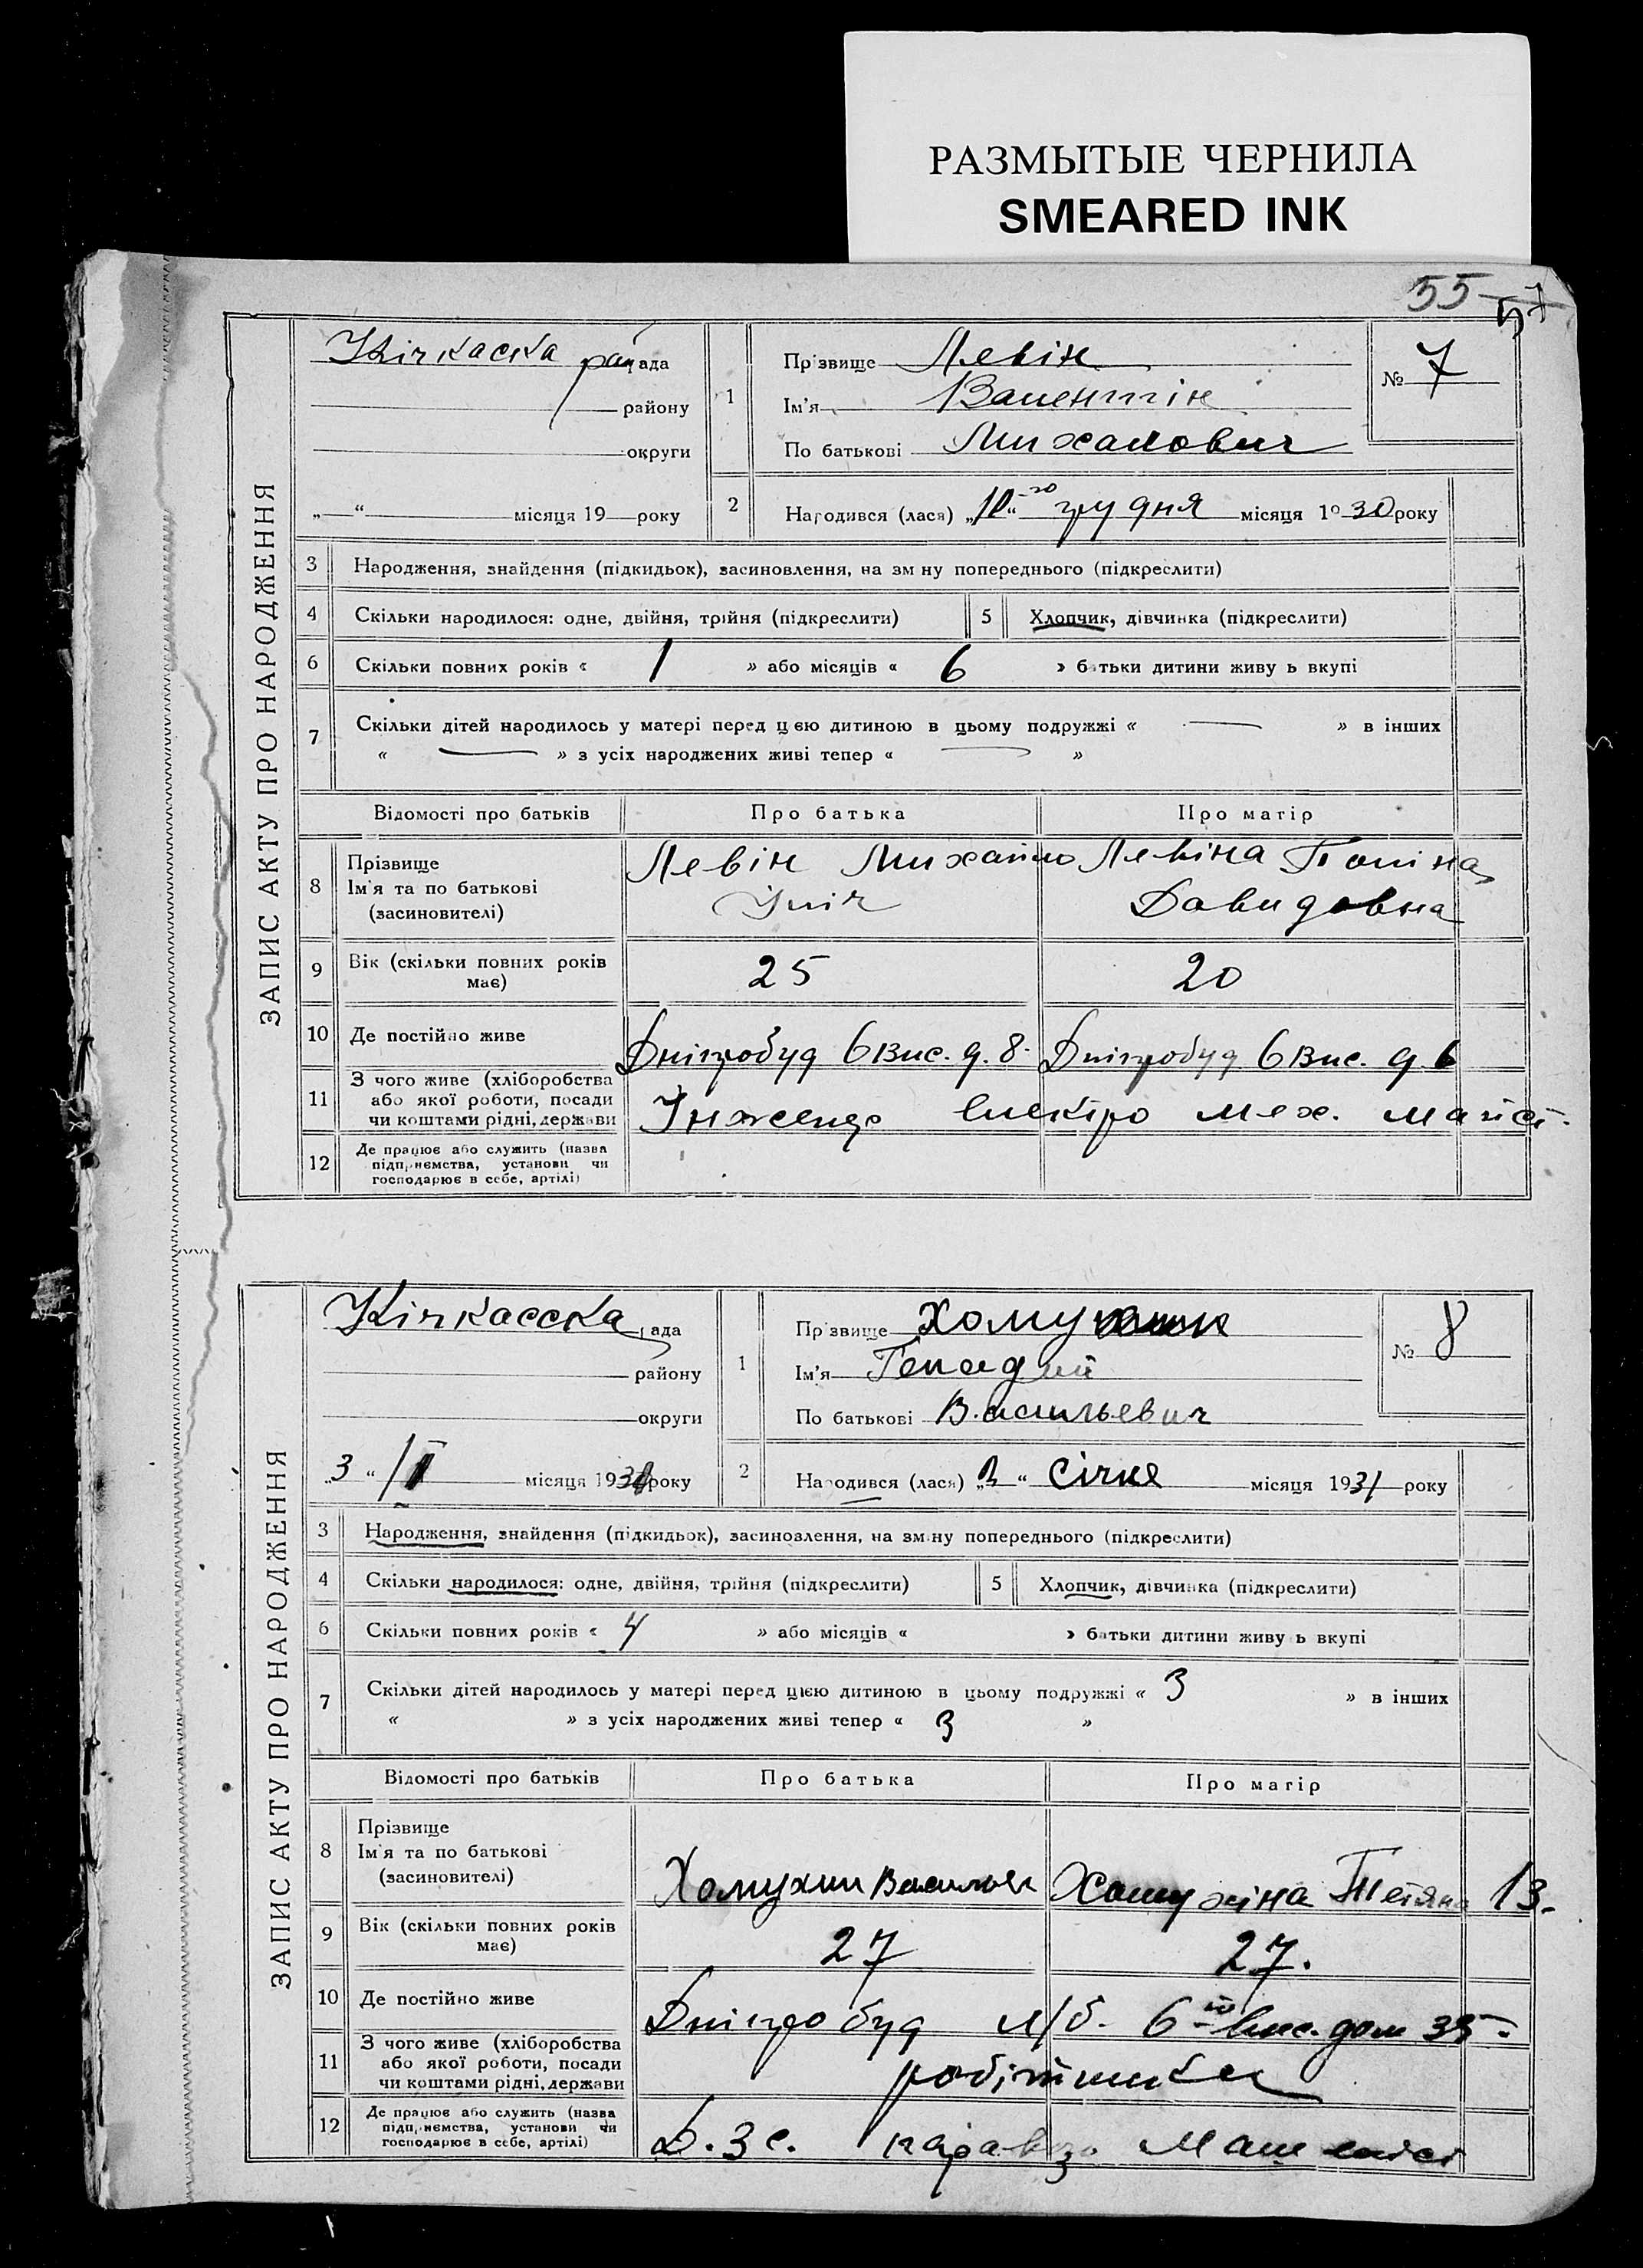 РАЗМЫТЫЕ ЧЕРНИЛА
SMEARED INK
55 57
ЗАПИС АКТУ ПРО НАРОДЖЕННЯ
Кічкаска рай рада
району
округи
„ “ місяця 19 року
1 Прізвище Левін
Ім'я Валентін
По батькові Михалович
№ 7
2 Народився (лася) „10-го“ грудня місяця 1930 року
3 Народження, знайдення (підкидьок), засиновлення, на зм ну попереднього (підкреслити)
4 Скільки народилося: одне, двійня, трійня (підкреслити) 5 Хлопчик, дівчинка (підкреслити)
6 Скільки повних років « 1 » або місяців « 6 » батьки дитини живу ь вкупі
7 Скільки дітей народилось у матері перед цією дитиною в цьому подружжі « — » в інших
« — » з усіх народжених живі тепер « — »
Відомості про батьків Про батька Про матір
8 Прізвище
Ім'я та по батькові
(засиновителі)
Левін Михайло
Іліч
Левіна Поліна
Давидовна
9 Вік (скільки повних років має) 25 20
10 Де постійно живе Дніпробуд 6 вис. д. 8. Дніпробуд 6 вис. д. 6
11 З чого живе (хліборобства
або якої роботи, посади
чи коштами рідні, держави
Інженер електро мех. майст.
12 Де працює або служить (назва
підприємства, установи чи
господарює в себе, артілі)
ЗАПИС АКТУ ПРО НАРОДЖЕННЯ
Кічкасска рада
району
округи
„3“ /II місяця 1931 року
1 Прізвище
Ім'я Генадий
По батькові Васильевич
№ 8
2 Народився (лася) „3“ січня місяця 1931 року
3 Народження, знайдення (підкидьок), засиновлення, на зм ну попереднього (підкреслити)
4 Скільки народилося: одне, двійня, трійня (підкреслити) 5 Хлопчик, дівчинка (підкреслити)
6 Скільки повних років « 4 » або місяців « » батьки дитини живу ь вкупі
7 Скільки дітей народилось у матері перед цією дитиною в цьому подружжі « 3 » в інших
« » з усіх народжених живі тепер « 3 »
Відомості про батьків Про батька Про матір
8 Прізвище
Ім'я та по батькові
(засиновителі)
Хомухин Васильен Хомухіна Тетяна В.
9 Вік (скільки повних років має) 27 27.
10 Де постійно живе Дніпробуд л/б. 6 вис. дом 35.
11 З чого живе (хліборобства
або якої роботи, посади
чи коштами рідні, держави
робітника
12 Де працює або служить (назва
підприємства, установи чи
господарює в себе, артілі)
Д.Зс. паравоз